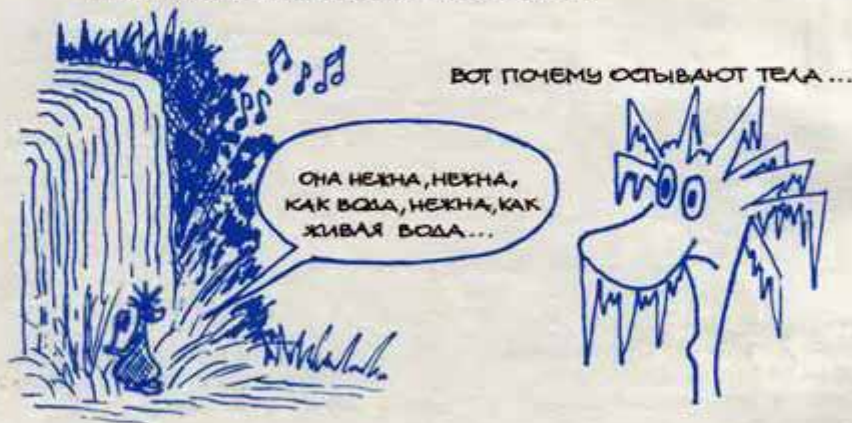 ОНА НЕЖНА, НЕЖНА,
КАК ВОДА, НЕЖНА, КАК
ЖИВАЯ ВОДА...
ВОТ ПОЧЕМУ ОСТЫВАЮТ ТЕЛА...